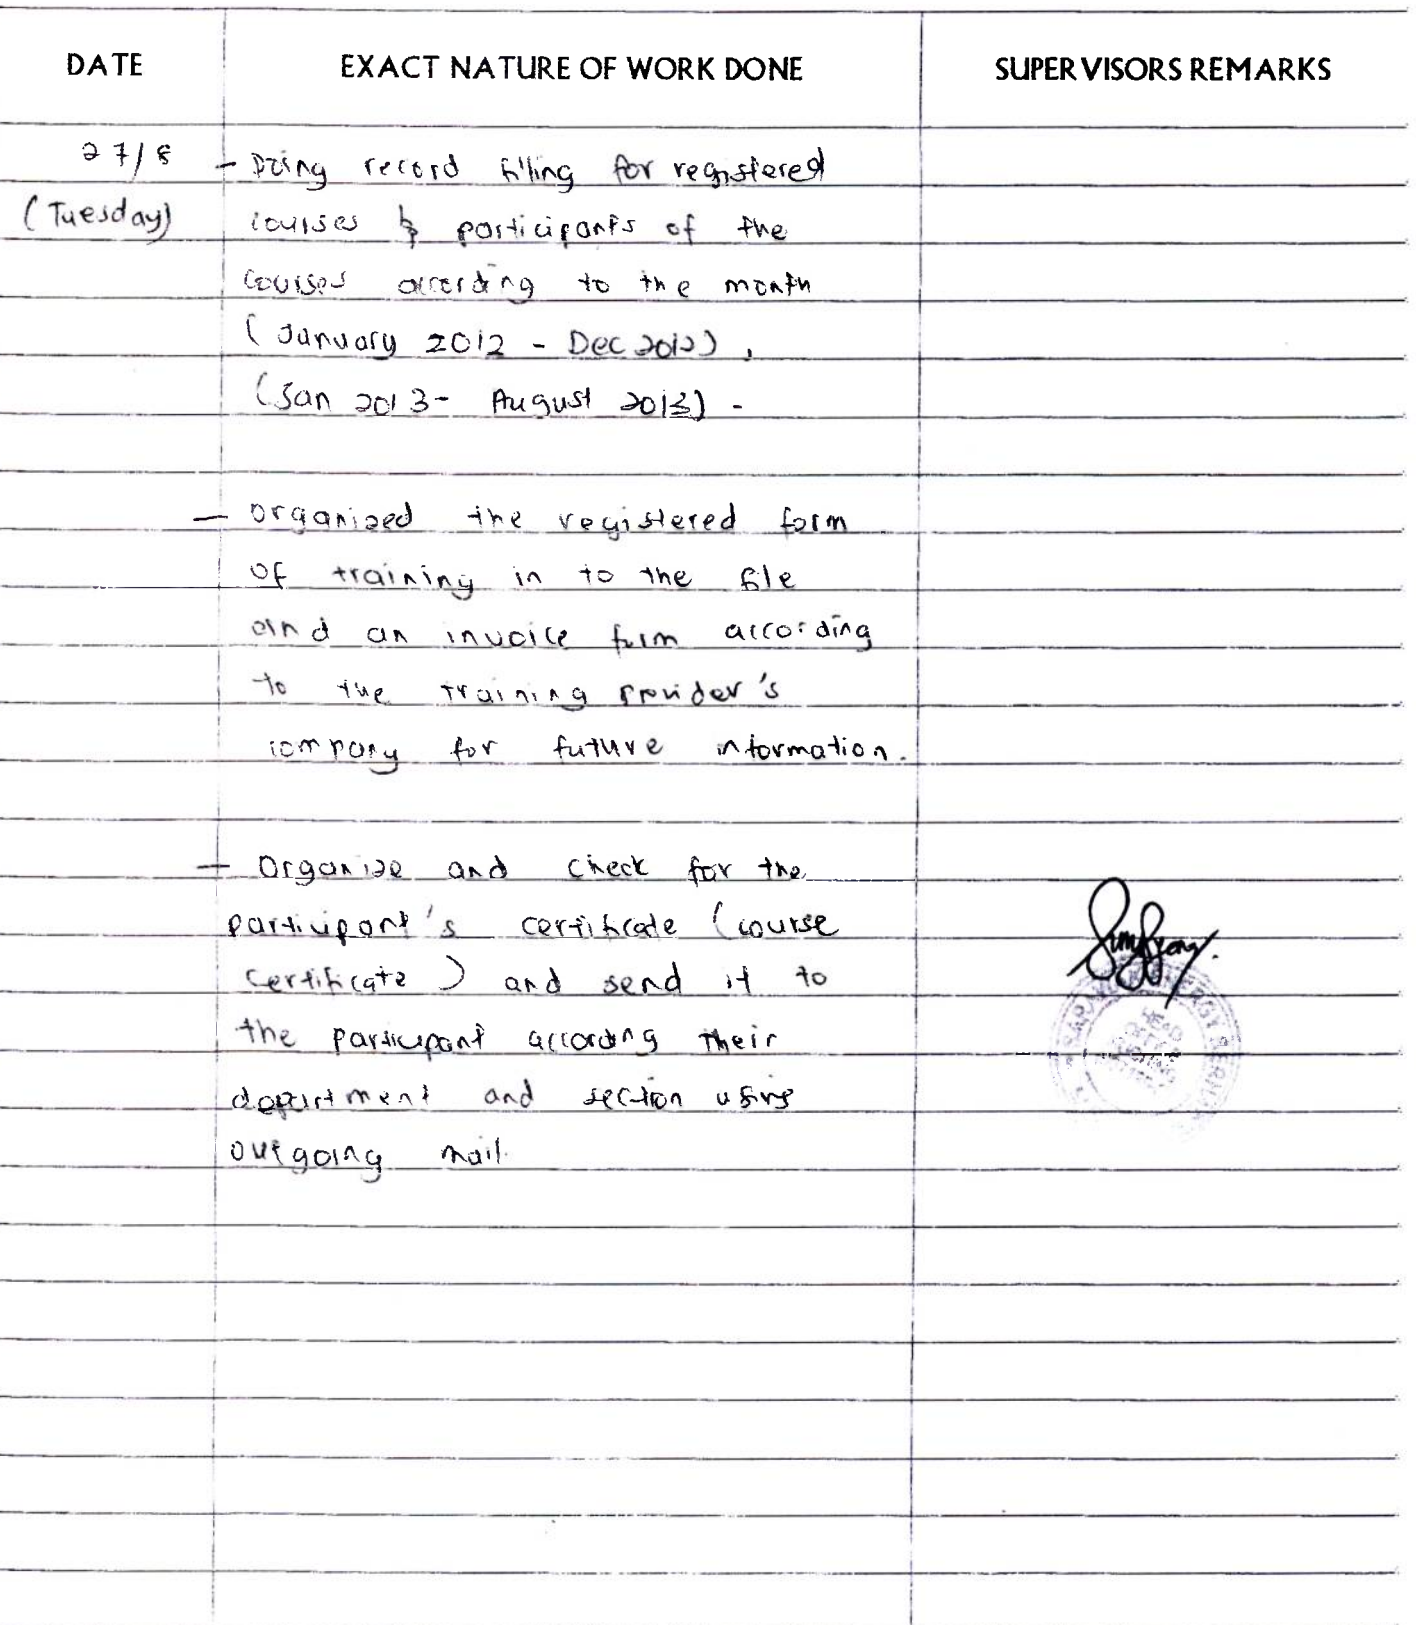 DATE EXACT NATURE OF WORK DONE SUPERVISORS REMARKS
27/8 - Doing record filling for registered
(Tuesday) courses & participants of the
courses according to the month
(January 2012 - Dec 2012),
(Jan 2013- August 2013) -
- Organized the registered form
of training in to the file
and an invoice form according
to the training provider's
company for future information.
- Organize and check for the
participant's certificate (course
certificate) and send it to
the participant according their
department and section using
outgoing mail.